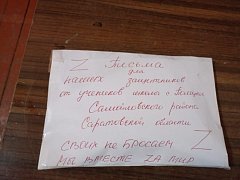 Z Письма
для
наших защитников
от учеников школы с.
Самойловского района
Саратовской области
СВОИХ НЕ БРОСАЕМ Z
МЫ ВМЕСТЕ ZA МИР